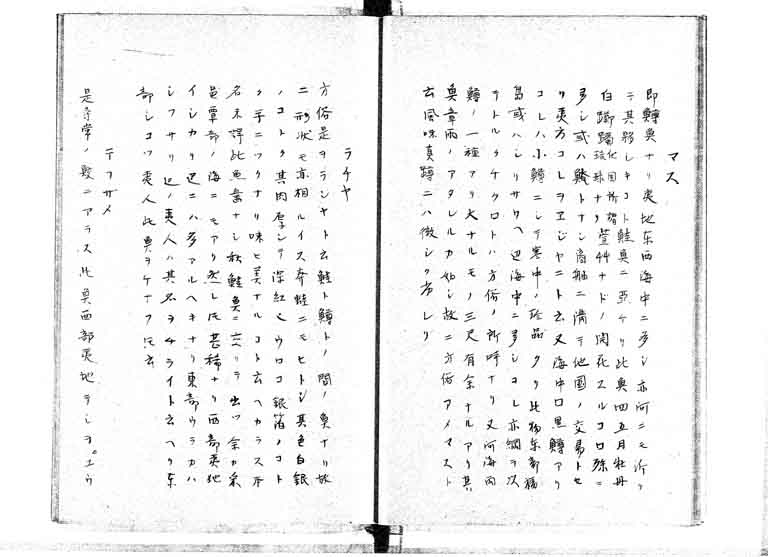 マス
即鱒魚ナリ夷地东西海中ニ多シ亦河ニモ泝リ
テ其夥シキコト鮭魚ニ亞ケリ此奥四五月牡丹
白躑躅化困所謂玫球ナリ萱艸ナドノ開花スルコロ殊ニ
多シ或ハ鹽トナシ商舶ニ満テ他國ノ交易トセ
リ夷方コレヲヱジヤニト云又海中口黒鱒アリ
コレハ小鱒ニシテ寒中ノ珍品タリ此物东部
島或ハシリサリヘ辺海中ニ多シコレ亦網ヲ次
テトルタケクロトハ方俗ノ所呼ナリ又河海内
鱒ノ一種アリ大ナルモノ三尺有余ナルアリ其
奥章雨ノアタレルカ如シ故ニ方俗アメマスト
云風味真鱒ニハ微シク劣レリ
ラチヤ
方俗是ヲラシヤト云鮭ト鱒トノ間ノ魚ナリ故
ニ形状モ亦相ルイス奔鮭ニモヒトシ其色白銀
ノコトク其肉厚シテ深紅ウロコ銀箔ノコト
ク手ニツクナリ味ヒ美ナルコト云ヘカラス夲
名未詳此魚番ナシ秋鮭魚ニ交リテ出ツ余カ采
邑覃部ノ海ニモアリ然レ𪜈甚稀ナリ西部夷地
イシカリ辺ニハ多アルヘキナリ東部ウラカハ
シフサリ辺ノ夷人ハ其名ヲチライト云ヘリ东
部シコツ夷人此奥ヲケナフ𪜈云
テフザメ
是尋常ノ鮫ニアラス此奥西部夷地テシヲユウ